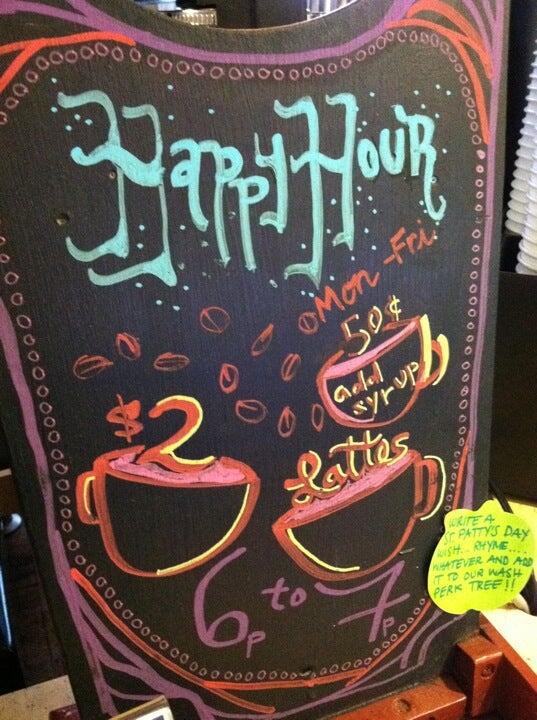 Happy Hour
Mon-Fri
50¢
add
syrup
$2
Lattes
6p to 7p
WRITE A
ST. PATTY'S DAY
WISH... RHYME....
WHATEVER AND ADD
IT TO OUR WASH
PERK TREE!!